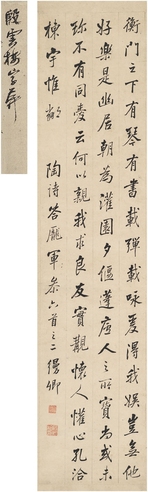 衡門之下有琴有書載彈載詠爰得我娛豈無他
好樂是幽居朝為灌園夕偃蓬廬人之所寶尚或未
珎不有同愛云何以親我求良友實覯懷人懽心孔洽
棟宇惟鄰 陶詩答龐軍參六首之二 卿
雲樓字屏